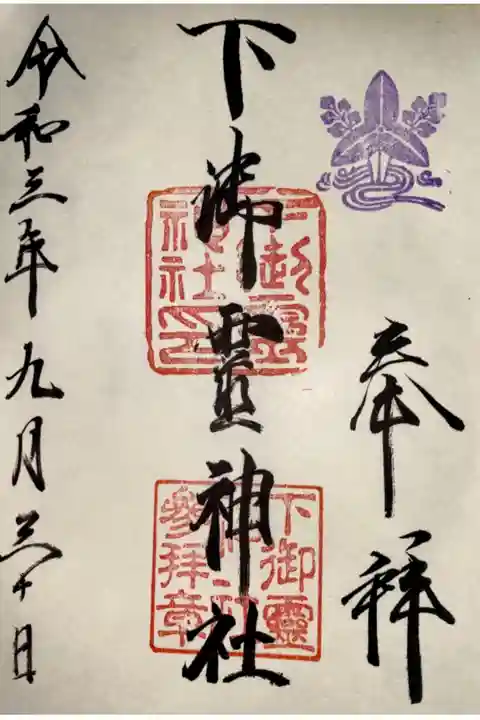 奉拝
下御靈神社
下御靈神社印
下御靈神社參拝章
令和三年九月三十日